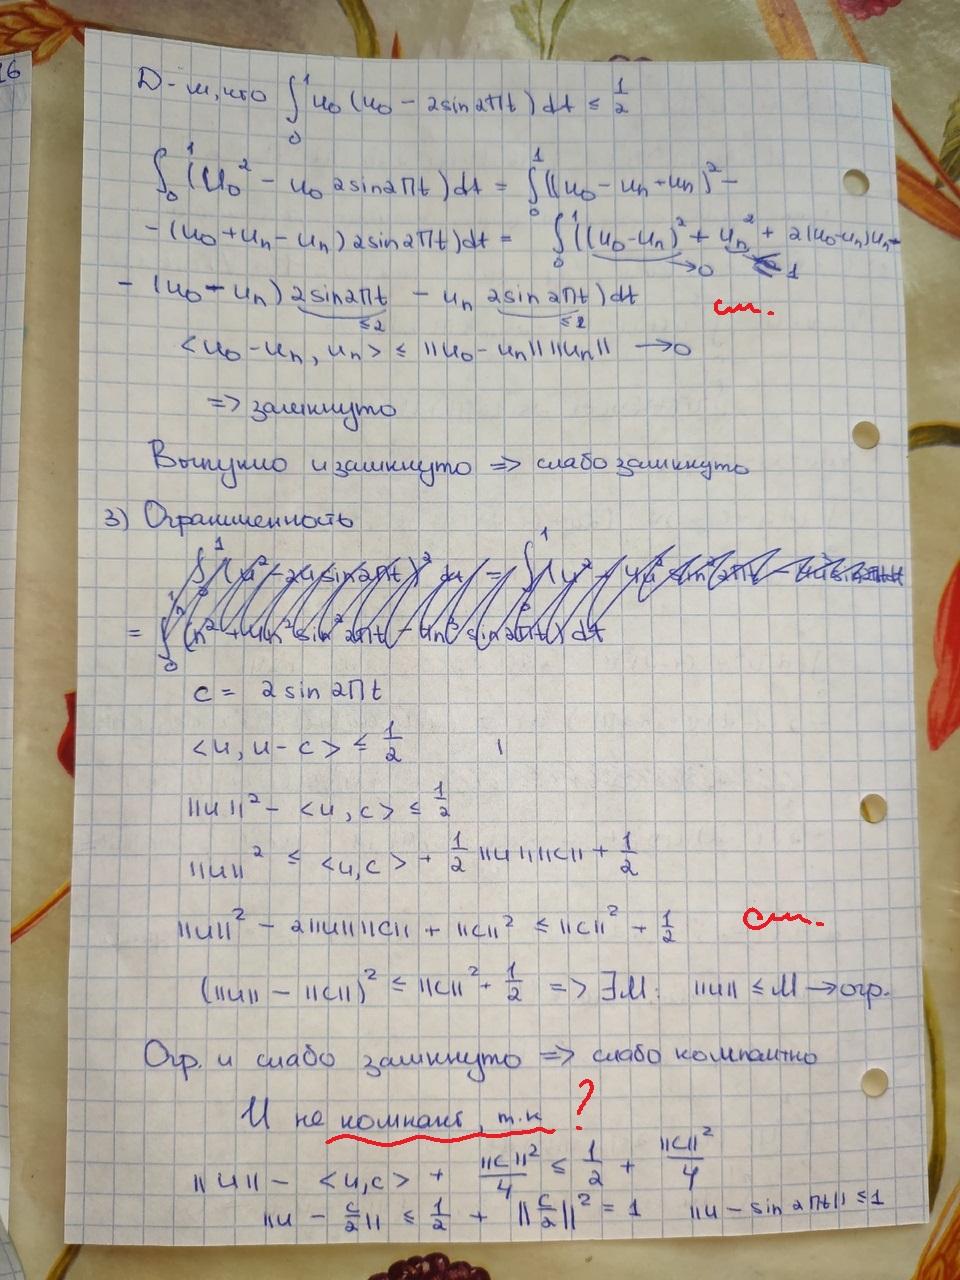 16
Д-м, что ∫₀¹ u₀ (u₀ - 2sin2πt) dt ≤ 1/2
∫₀¹ (u₀² - u₀ 2sin2πt) dt = ∫₀¹ ((u₀ - uₙ + uₙ)² -
- (u₀ + uₙ - uₙ) 2sin2πt) dt = ∫₀¹ ((u₀ - uₙ)² + uₙ² + 2(u₀ - uₙ)uₙ -
→0 1
- (u₀ - uₙ) 2sin2πt - uₙ 2sin2πt) dt
≤2 ≤2
см.
<u₀ - uₙ, uₙ> ≤ ||u₀ - uₙ|| ||uₙ|| → 0
=> замкнуто
Выпукло и замкнуто => слабо замкнуто
3) Ограниченность
c = 2 sin 2πt
<u, u - c> ≤ 1/2
||u||² - <u, c> ≤ 1/2
||u||² ≤ <u, c> + 1/2 ||u|| ||c|| + 1/2
||u||² - 2||u|| ||c|| + ||c||² ≤ ||c||² + 1/2 см.
(||u|| - ||c||)² ≤ ||c||² + 1/2 => ∃M: ||u|| ≤ M → огр.
Огр. и слабо замкнуто => слабо компактно
U не компакт, т.к ?
||u|| - <u, c> + ||c||²/4 ≤ 1/2 + ||c||²/4
||u - c/2|| ≤ 1/2 + ||c/2||² = 1 ||u - sin 2πt|| ≤ 1